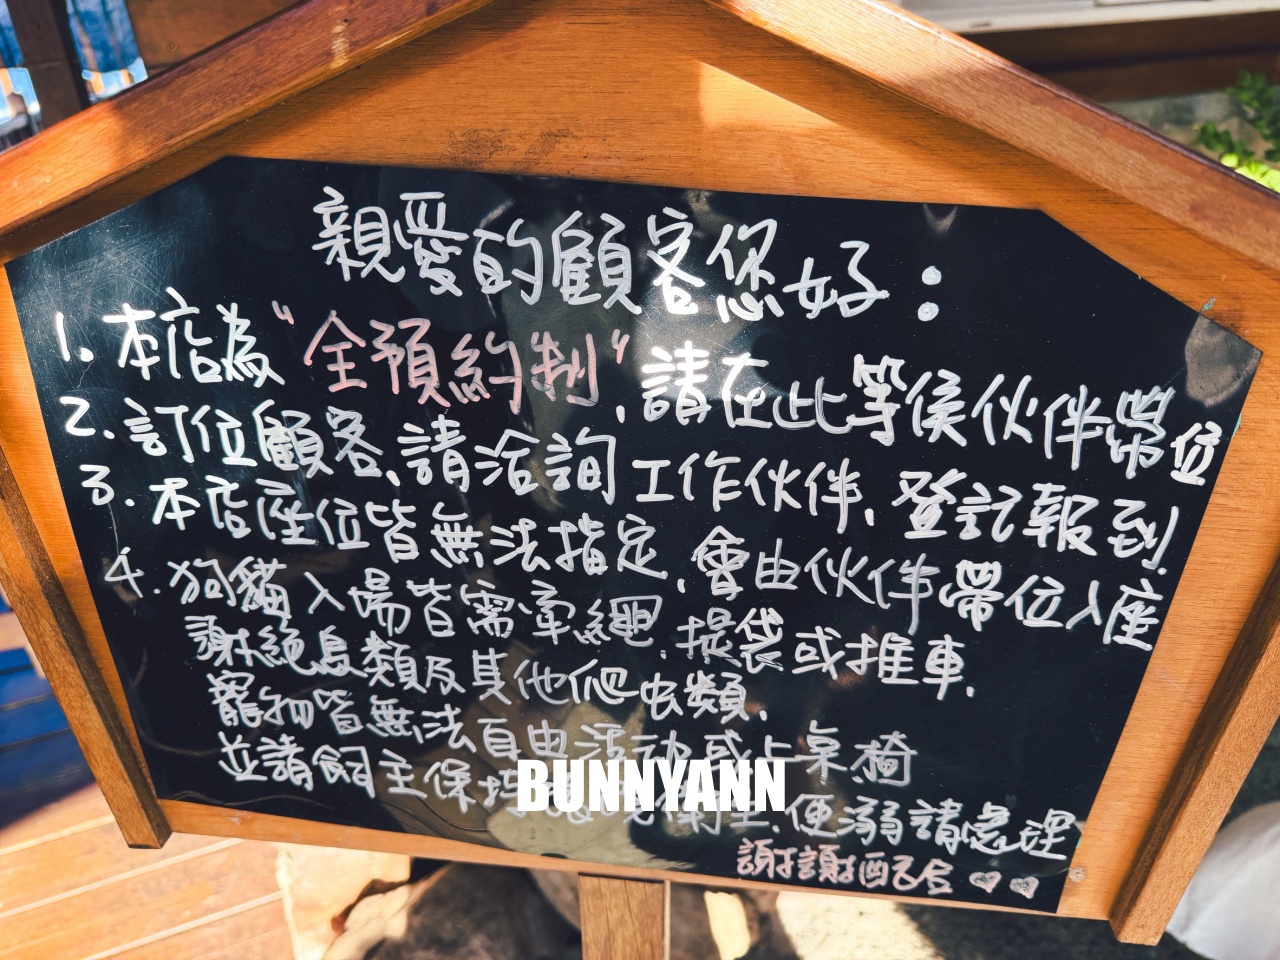 親愛的顧客您好：
1. 本店為"全預約制"，請在此等侯伙伴帶位
2. 訂位顧客、請洽詢工作伙伴，登記報到
3. 本店座位皆無法指定，會由伙伴帶位入座
4. 狗貓入場皆需牽繩、提袋或推車，
謝絕鳥類及其他爬虫類，
寵物皆無法自由活动或上桌椅
並請飼主保持環境衛生，便溺請處理
謝謝配合♡♡
BUNNYANN